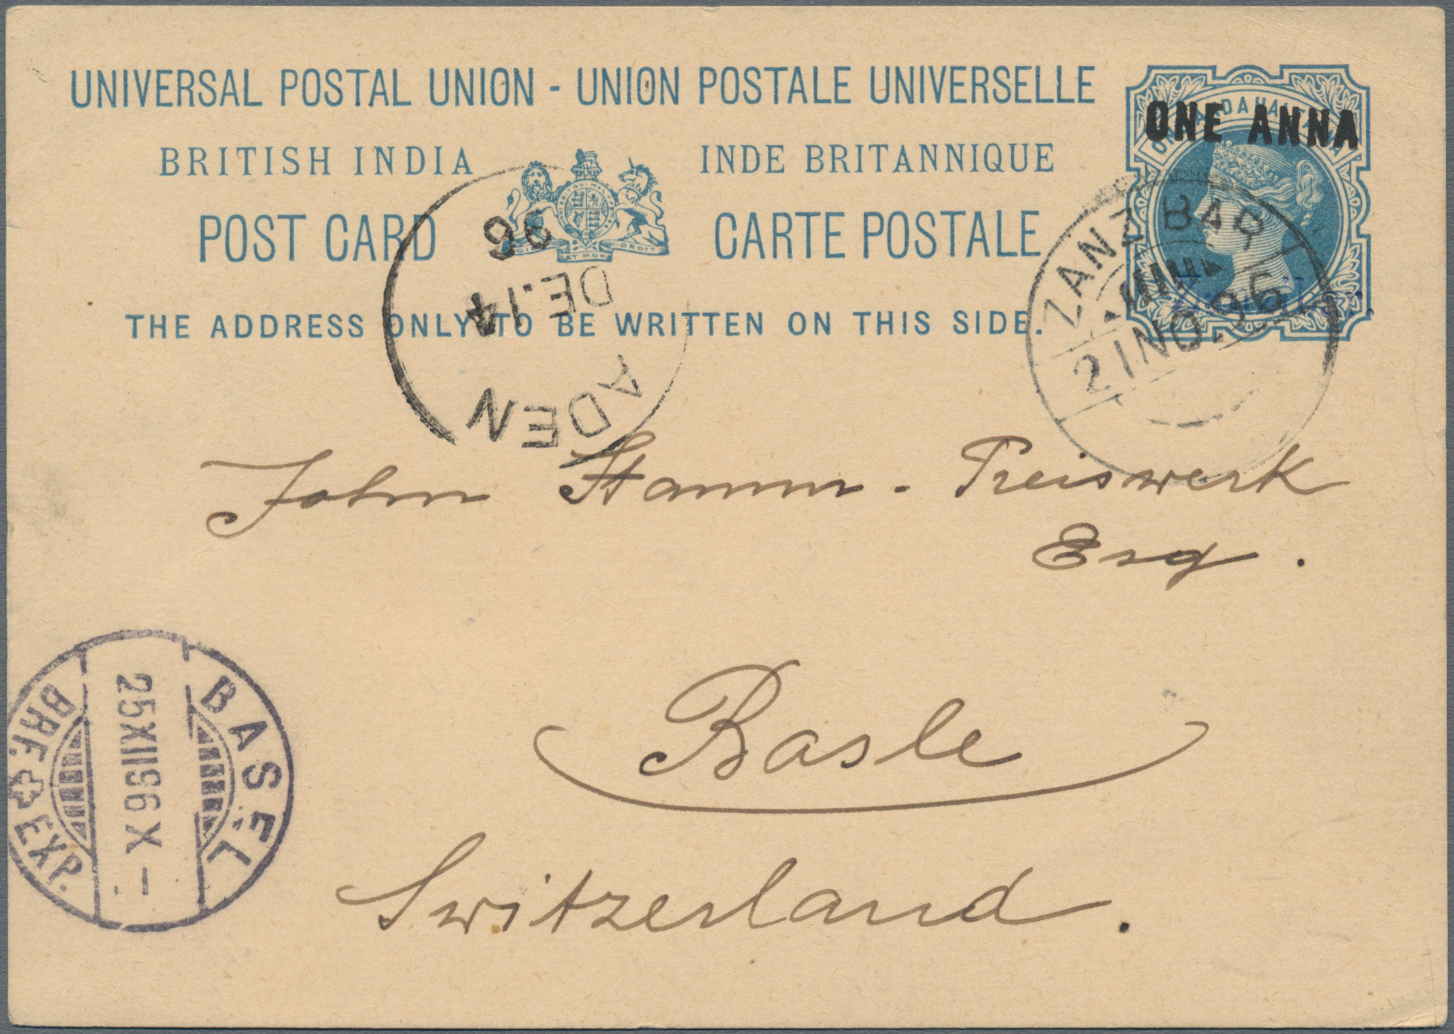 UNIVERSAL POSTAL UNION - UNION POSTALE UNIVERSELLE
BRITISH INDIA INDE BRITANNIQUE
POST CARD CARTE POSTALE
THE ADDRESS ONLY TO BE WRITTEN ON THIS SIDE.
ONE ANNA
ZANZIBAR
21 NO. 96
ADEN
DE.14
96
John Stamm - Preiswerk
Esq.
Basle
Switzerland.
BASEL
25 XII 96 X -
BRF. EXP.